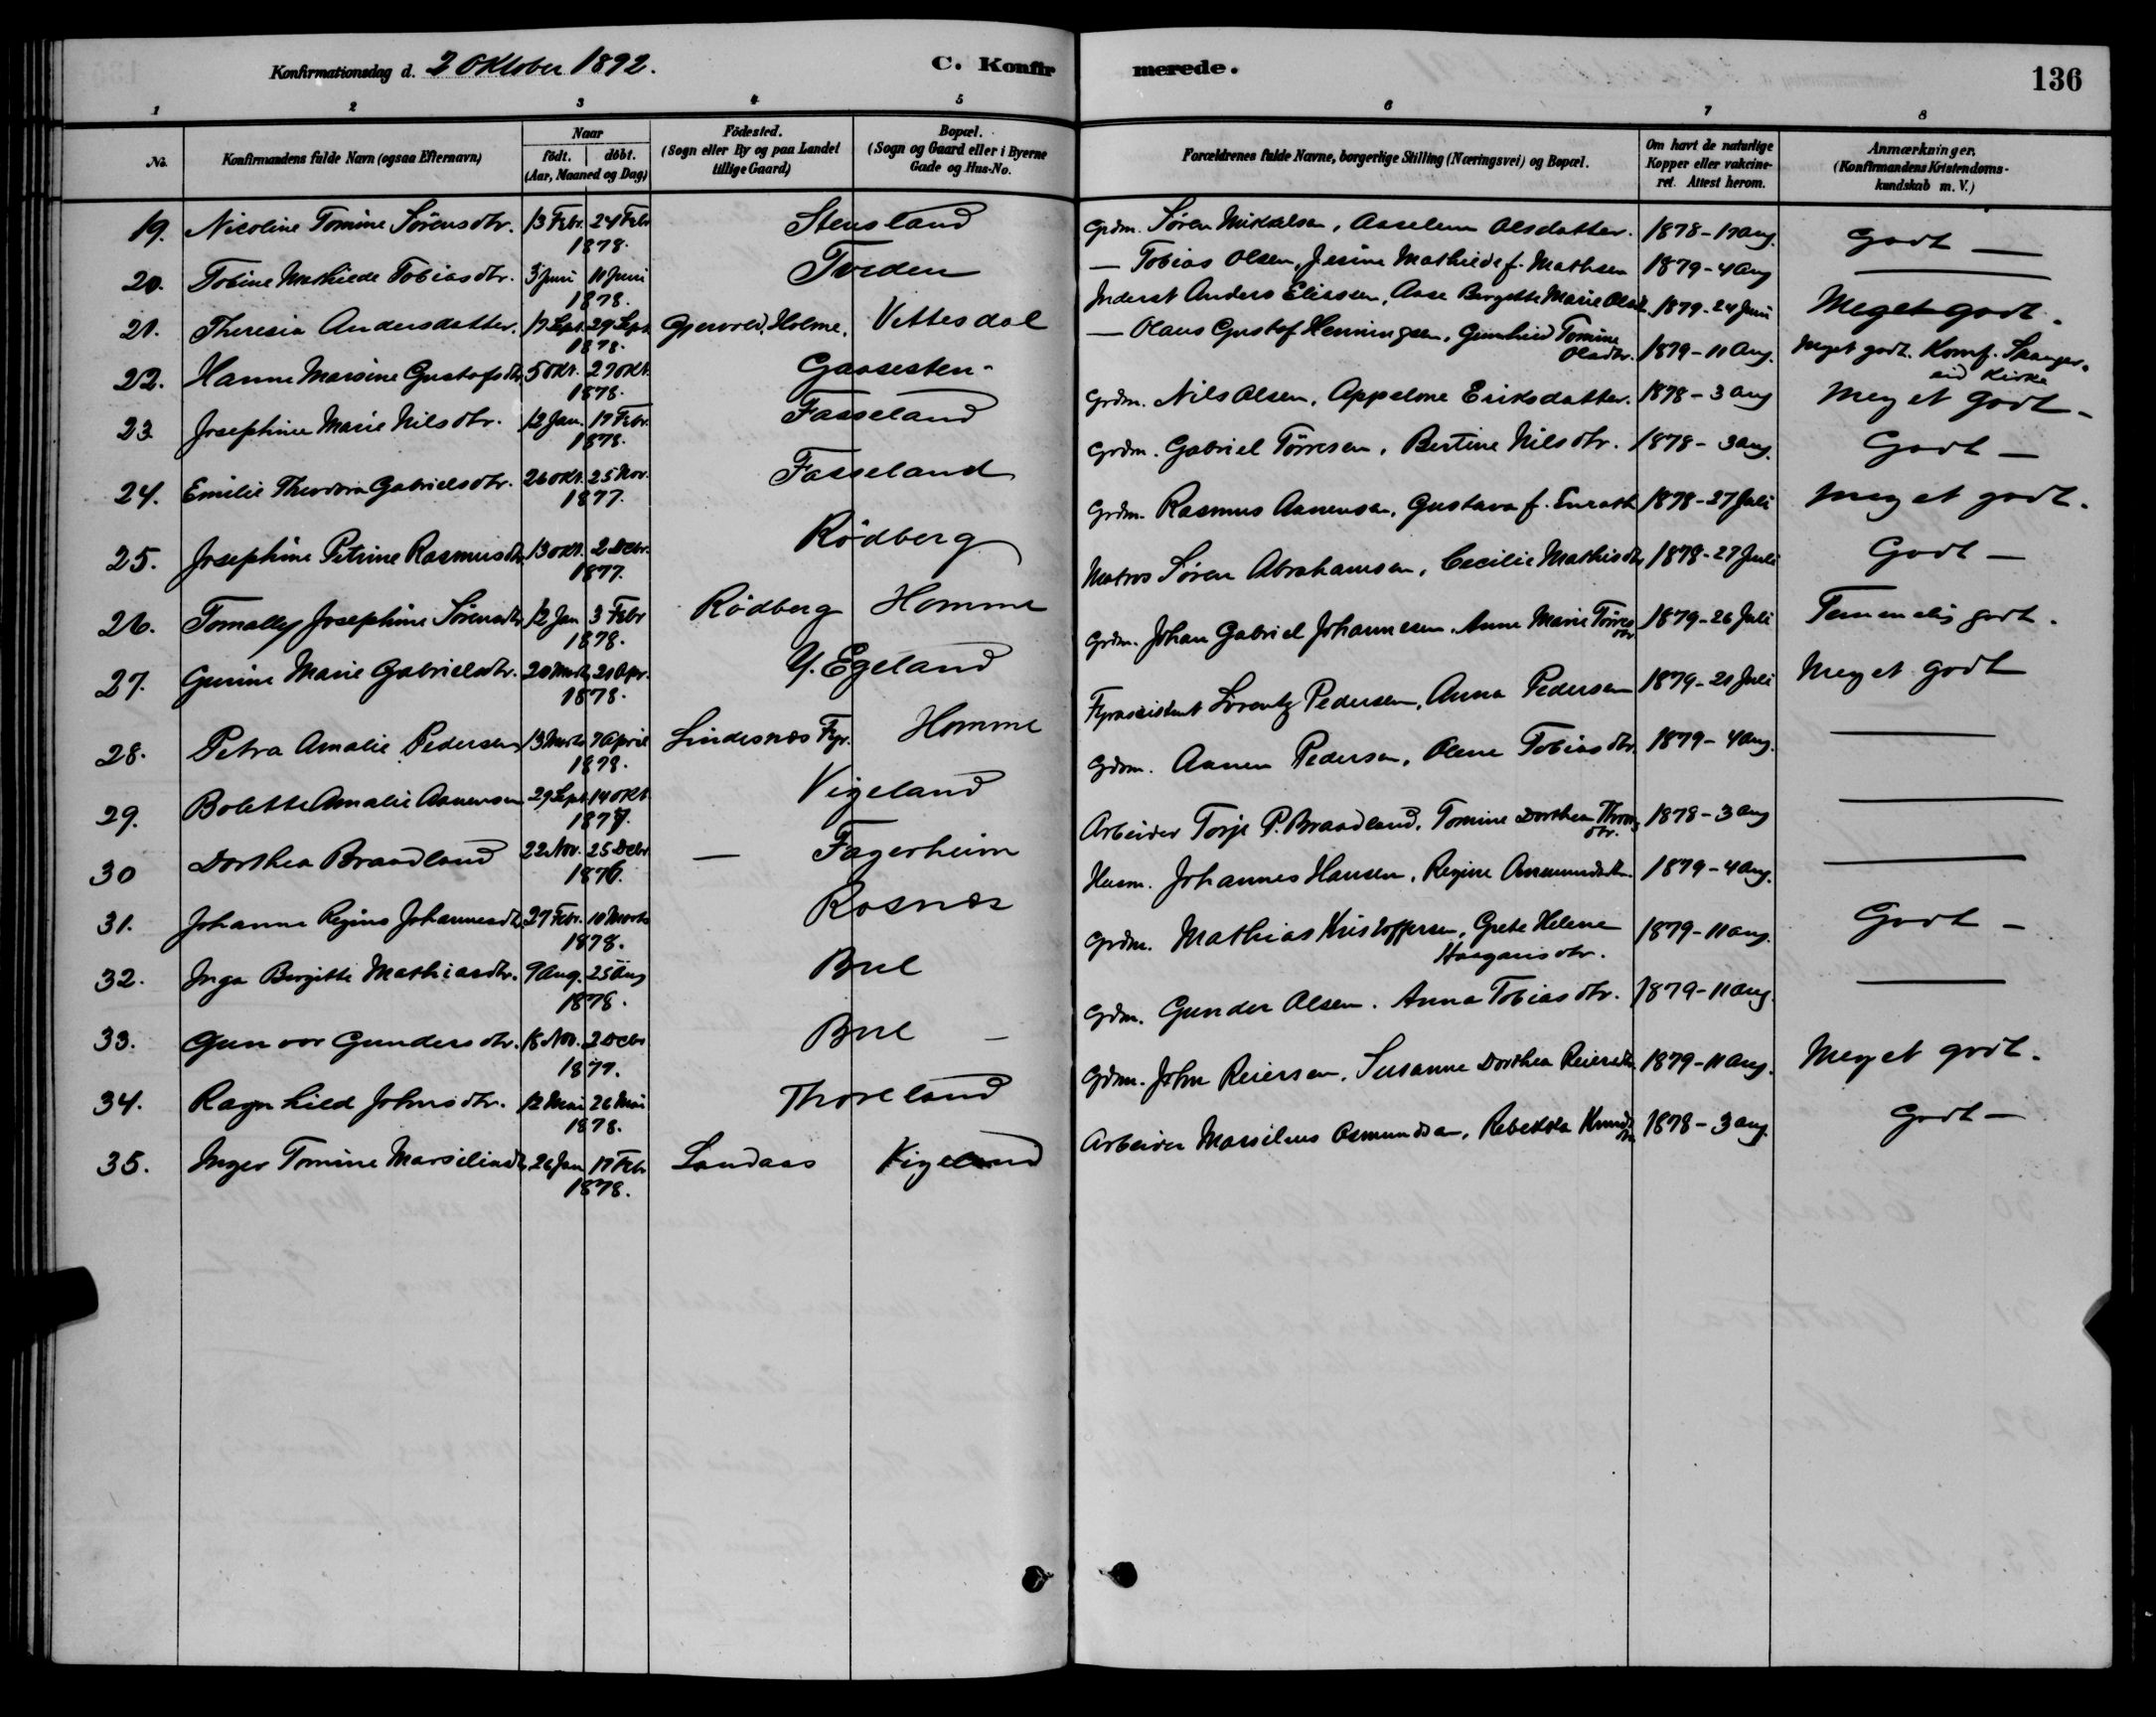 Konfirmationsdag d. 2 Oktober 1892.
C. Konfir merede.
136
1 2 3 4 5 6 7 8
No. Konfirmandens fulde Navn (ogsaa Efternavn) Naar født. døbt. (Aar, Maaned og Dag) Fødested. (Sogn eller By og paa Landet tillige Gaard) Bopæl. (Sogn og Gaard eller i Byerne Gade og Hus-No. Forældrenes fulde Navne, borgerlige Stilling (Næringsvei) og Bopæl. Om havt de naturlige Kopper eller vakcine- ret. Attest herom. Anmærkninger, (Konfirmandens Kristendoms- kundskab m. V.)
19. Nicoline Tomine Sørensdtr. 13 Febr. 24 Febr 1878. Stensland Grdm. Søren Mikkelsen, Aaselene Olsdatter. 1878 - 17 Aug. Godt —
20. Tobine Mathilde Tobiasdtr. 3 Juni 11 Juni 1878. Tveden — Tobias Olsen, Jesine Mathilde f. Mathsen 1879 - 4 Aug —
21. Theresia Andersdatter. 17 Sept. 29 Sept 1878. Gjervold, Holme, Vittesdal Inderst Anders Eliassen, Aase Bergitte Marie Olsdtr 1879 - 24 Juni Meget godt.
22. Hanne Marsine Gustafsdtr 5 Okt. 27 Okt. 1878. Gaasesten - — Olaus Gustaf Henningsen, Gunhild Tomine Olsdtr. 1879 - 11 Aug. Meget godt. Komf. Spanger- eid Kirke
23. Josephine Marie Nilsdtr. 12 Jan. 17 Febr. 1878. Fasseland Grdm. Nils Olsen, Appelone Eriksdatter. 1878 - 3 Aug Meget Godt -
24. Emilie Theodora Gabrielsdtr. 26 Okt. 25 Nov. 1877. Fasseland Grdm. Gabriel Tørresen, Bertine Nilsdtr. 1878 - 3 Aug. Godt —
25. Josephine Petrine Rasmusdtr 13 Okt. 2 Debr. 1877. Rødberg Grdm. Rasmus Aanensen, Gustava f. 1878 - 27 Juli Meget godt.
26. Tomally Josephine Sørensdtr 12 Jan 3 Febr 1878. Rødberg Homme Matros Søren Abrahamsen, Cecilie Mathisdtr 1878 - 27 Juli Godt —
27. Gurine Marie Gabrielsdtr. 20 Marts 20 Apr. 1878. Y. Egeland Grdm. Johan Gabriel Johannesen. Anne Marie Tørresdtr 1879 - 26 Juli Temmelig godt.
28. Petra Amalie Pedersen 13 Marts 7 April 1878. Lindesnæs Fyr. Homme Fyrassistent Lorentz Pedersen, Anna Pedersen 1879 - 21 Juli Meget godt
29. Bolette Amalie Aanensen 29 Sept. 14 Okt. 1877. Vigeland Grdm. Aanen Pedersen, Olene Tobiasdtr. 1879 - 4 Aug. —
30 Dorthea Braadland 22 Nov. 25 Debr 1876. — Fagerheim Arbeider Torje P. Braadland, Tomine Dorthea Thomsdtr. 1878 - 3 Aug —
31. Johanne Regine Johannesdtr 27 Febr. 10 Marts 1878. Rosnæs Husm. Johannes Hansen, Regine Aanensdatter 1879 - 4 Aug. —
32. Inga Bergitte Mathiasdtr. 9 Aug. 25 Aug 1878. Brel Grdm. Mathias Kristoffersen, Grete Helene dtr. 1879 - 11 Aug. Godt -
33. Gunvor Gundersdtr. 18 Nov. 2 Debr 1877. Brel — Grdm. Gunder Olsen. Anna Tobiasdtr. 1879 - 11 Aug. —
34. Ragnhild Johnsdtr. 12 Mai 26 Mai 1878. Thoreland Grdm. John Reiersen. Susanne Dorthea Reiersdtr. 1879 - 11 Aug. Meget godt.
35. Inger Tomine Marsiliusdtr 26 Jan 17 Febr 1878. Landaas Vigeland Arbeider Marsilius Osmundsen, Rebekka Knudsdtr 1878 - 3 Aug. Godt —